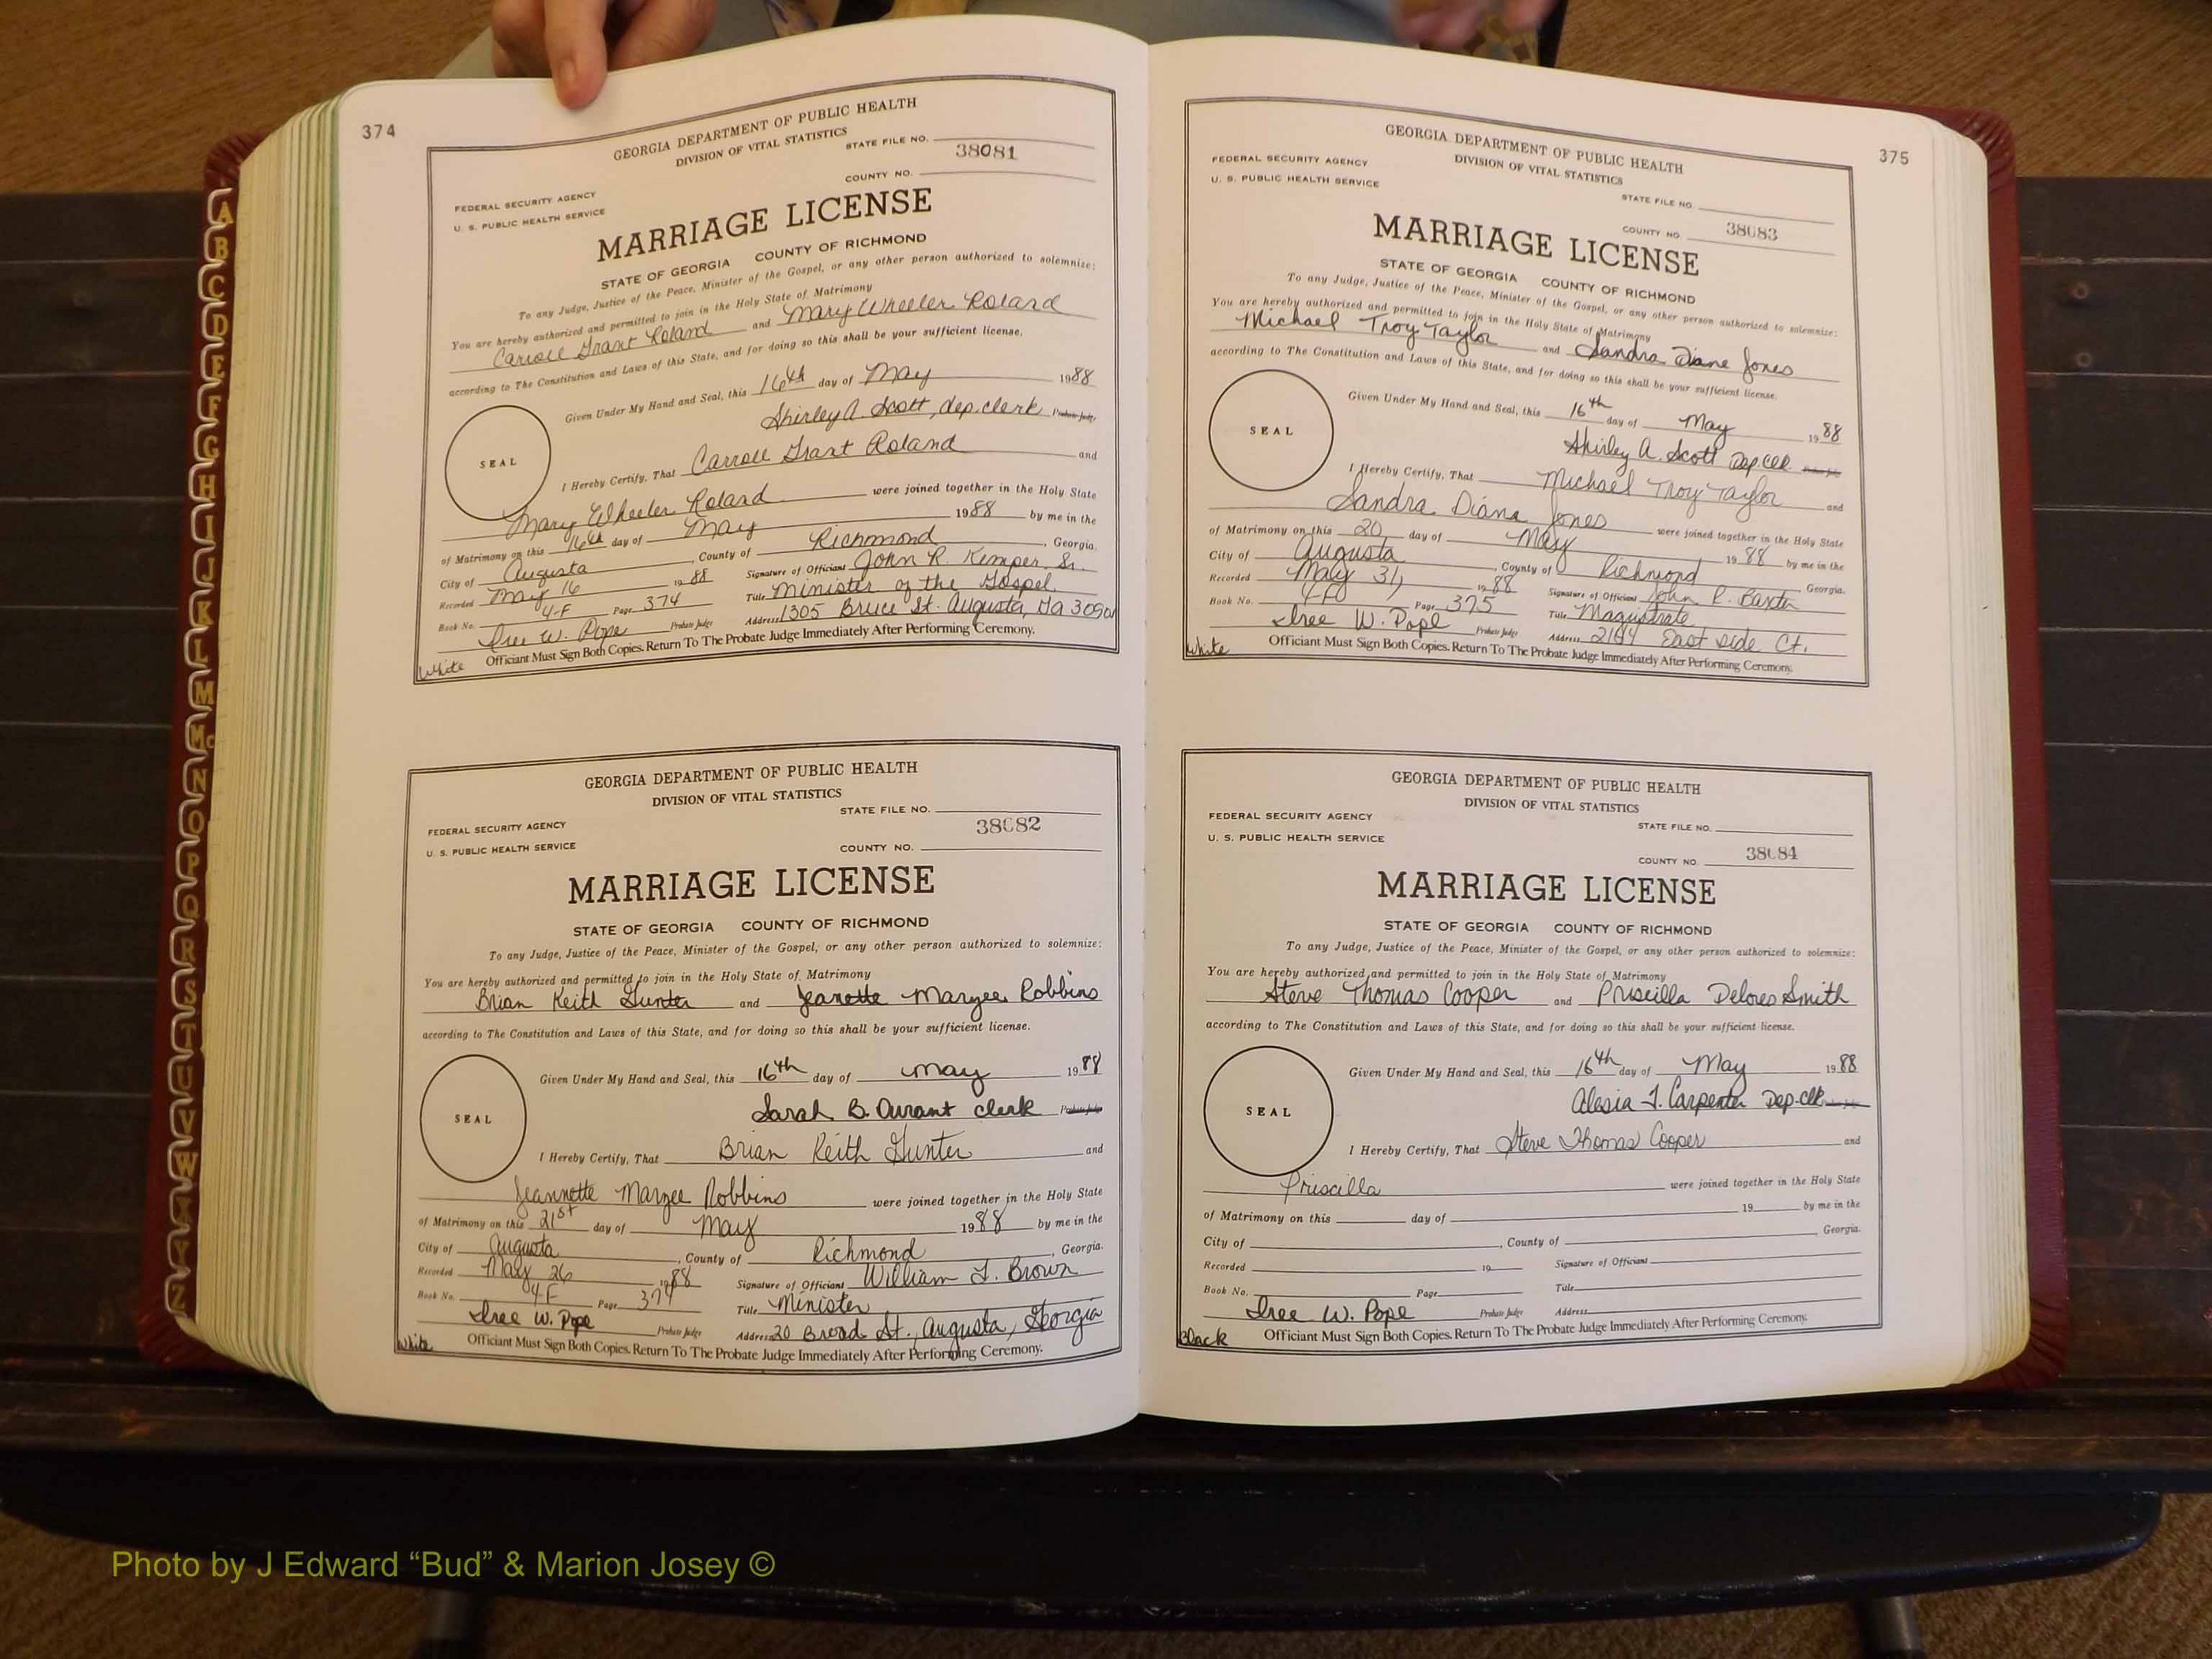 374
GEORGIA DEPARTMENT OF PUBLIC HEALTH
DIVISION OF VITAL STATISTICS
STATE FILE NO. 38081
COUNTY NO.
FEDERAL SECURITY AGENCY
U. S. PUBLIC HEALTH SERVICE
MARRIAGE LICENSE
STATE OF GEORGIA COUNTY OF RICHMOND
To any Judge, Justice of the Peace, Minister of the Gospel, or any other person authorized to solemnize:
You are hereby authorized and permitted to join in the Holy State of Matrimony
Carroll Grant Roland and Mary Wheeler Roland
according to The Constitution and Laws of this State, and for doing so this shall be your sufficient license.
Given Under My Hand and Seal, this 16th day of May 1988
Shirley A. Scott, dep. clerk Probate Judge
SEAL
I Hereby Certify, That Carroll Grant Roland and
Mary Wheeler Roland were joined together in the Holy State
of Matrimony on this 16th day of May 1988 by me in the
City of Augusta, County of Richmond, Georgia.
Recorded May 16 1988 Signature of Officiant John R. Kemper Sr.
Book No. 4-F Page 374 Title Minister of the Gospel
Iree W. Pope Probate Judge Address 1305 Bruce St. Augusta, Ga
White Officiant Must Sign Both Copies. Return To The Probate Judge Immediately After Performing Ceremony.
GEORGIA DEPARTMENT OF PUBLIC HEALTH
DIVISION OF VITAL STATISTICS
STATE FILE NO.
38082
FEDERAL SECURITY AGENCY
U. S. PUBLIC HEALTH SERVICE
COUNTY NO.
MARRIAGE LICENSE
STATE OF GEORGIA COUNTY OF RICHMOND
To any Judge, Justice of the Peace, Minister of the Gospel, or any other person authorized to solemnize:
You are hereby authorized and permitted to join in the Holy State of Matrimony
Brian Keith Gunter and Jeanette Marzee Robbins
according to The Constitution and Laws of this State, and for doing so this shall be your sufficient license.
Given Under My Hand and Seal, this 16th day of May 1988
Sarah B. Durant clerk Probate Judge
SEAL
I Hereby Certify, That Brian Keith Gunter and
Jeannette Marzee Robbins were joined together in the Holy State
of Matrimony on this 21st day of May 1988 by me in the
City of Augusta, County of Richmond, Georgia.
Recorded May 26 1988 Signature of Officiant William J. Brown
Book No. 4-F Page 374 Title Minister
Iree W. Pope Probate Judge Address 20 Broad St., Augusta, Georgia
White Officiant Must Sign Both Copies. Return To The Probate Judge Immediately After Performing Ceremony.
375
GEORGIA DEPARTMENT OF PUBLIC HEALTH
DIVISION OF VITAL STATISTICS
FEDERAL SECURITY AGENCY
U. S. PUBLIC HEALTH SERVICE
STATE FILE NO.
COUNTY NO. 38083
MARRIAGE LICENSE
STATE OF GEORGIA COUNTY OF RICHMOND
To any Judge, Justice of the Peace, Minister of the Gospel, or any other person authorized to solemnize:
You are hereby authorized and permitted to join in the Holy State of Matrimony
Michael Troy Taylor and Sandra Diane Jones
according to The Constitution and Laws of this State, and for doing so this shall be your sufficient license.
Given Under My Hand and Seal, this 16th day of May 1988
Shirley A. Scott Dep. Clk Probate Judge
SEAL
I Hereby Certify, That Michael Troy Taylor and
Sandra Diane Jones were joined together in the Holy State
of Matrimony on this 20 day of May 1988 by me in the
City of Augusta, County of Richmond Georgia.
Recorded May 31, 1988 Signature of Officiant John R. Baxter
Book No. Page 375 Title Magistrate
Iree W. Pope Probate Judge Address East side Ct.
White Officiant Must Sign Both Copies. Return To The Probate Judge Immediately After Performing Ceremony.
GEORGIA DEPARTMENT OF PUBLIC HEALTH
DIVISION OF VITAL STATISTICS
FEDERAL SECURITY AGENCY
U. S. PUBLIC HEALTH SERVICE
STATE FILE NO.
COUNTY NO. 38084
MARRIAGE LICENSE
STATE OF GEORGIA COUNTY OF RICHMOND
To any Judge, Justice of the Peace, Minister of the Gospel, or any other person authorized to solemnize:
You are hereby authorized and permitted to join in the Holy State of Matrimony
Steve Thomas Cooper and Priscilla Delores Smith
according to The Constitution and Laws of this State, and for doing so this shall be your sufficient license.
Given Under My Hand and Seal, this 16th day of May 1988
Alesia J. Carpenter Dep. Clk Probate Judge
SEAL
I Hereby Certify, That Steve Thomas Cooper and
Priscilla were joined together in the Holy State
of Matrimony on this day of 19 by me in the
City of , County of Georgia.
Recorded 19 Signature of Officiant
Book No. Page Title
Iree W. Pope Probate Judge Address
Black Officiant Must Sign Both Copies. Return To The Probate Judge Immediately After Performing Ceremony.
A
B
C
D
E
F
G
H
I
J
K
L
M
Mc
N
O
P
Q
R
S
T
U
V
W
X
Y
Z
Photo by J Edward “Bud” & Marion Josey ©